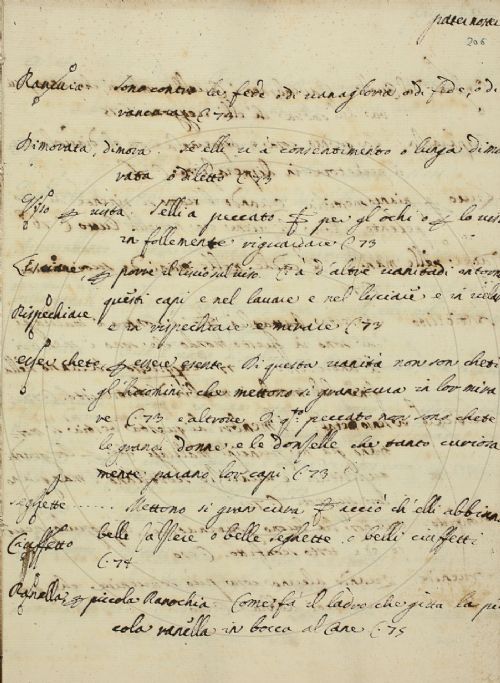 pater noster
206
Rancura sono contro la fede o di vanagloria, o di fede, o di
rancura C. 74
Dimorata, dimora. se elli vi à consentimento o lunga dimo
rata o diletto C. 73
Viso p vista. S'elli a peccato p per gl'ochi o p lo viso
in follemente riguardare C. 73
Lisciare, p porre il liscio sul viso. C'à d'altre vanitadi intorno
questi capi e nel lavare e nel lisciare e in
Rispechiare e in rispechiare e mirare C. 73
esser chete p essere esente. Di questa vanità non son cheti
gl'huomini che mettono si gran cura in lor mira
re C. 73 e altrove. Di q.to peccato non sono chete
le grandi donne e le donzelle che tanto curiosa
mente parano lor capi C. 73
seghette ...... Mettono si gran cura p acciò ch'elli abbian
Ciuffetto belle o belle seghette e belli ciuffetti
C. 74
Ranella, p piccola Ranochia. Come fà il ladro che gitta la pi
cola ranella in bocca al Cane C. 75